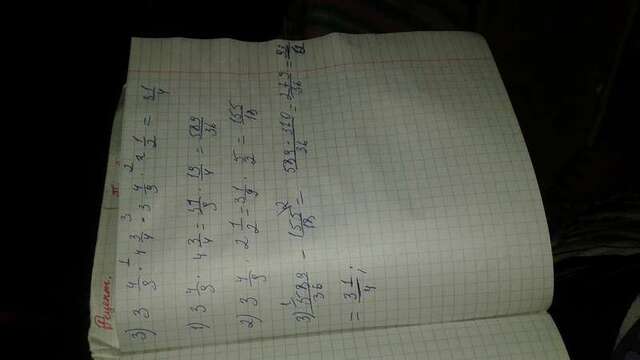 Рецепт.
3) 3 4/9 · 4 3/4 - 3 4/9 · 2 1/2 = 31/4
1) 3 4/9 · 4 3/4 = 31/9 · 19/4 = 589/36
2) 3 4/9 · 2 1/2 = 31/9 · 5/2 = 155/18
3) 589/36 - 155/18 = 589-310/36 = 279/36 =
= 31/4;